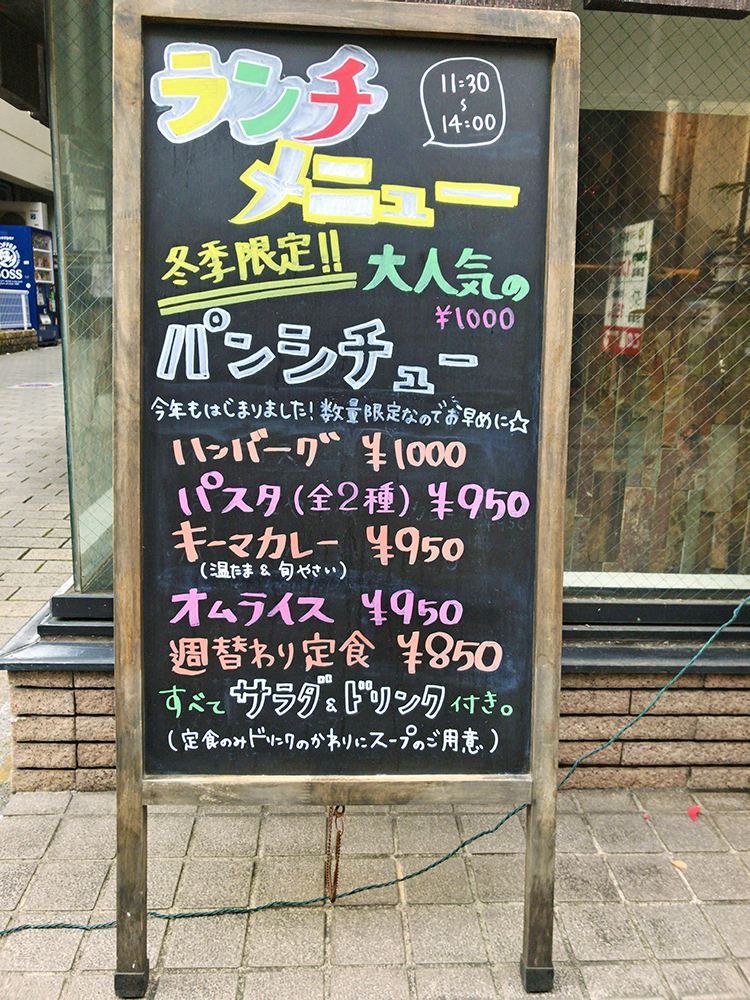 ランチ
メニュー
11:30
~
14:00
冬季限定!!
大人気の
¥1000
パンシチュー
今年もはじまりました!数量限定なのでお早めに☆
ハンバーグ ¥1000
パスタ(全2種) ¥950
キーマカレー ¥950
(温たま&旬やさい)
オムライス ¥950
週替わり定食 ¥850
すべてサラダ&ドリンク付き。
(定食のみドリンクのかわりにスープのご用意)
BOSS